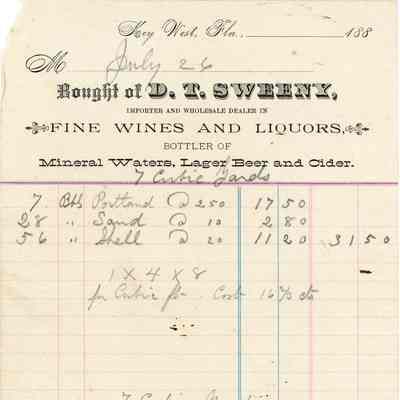 Key West, Fla., 188
M July 26
Bought of D. T. SWEENY,
IMPORTER AND WHOLESALE DEALER IN
FINE WINES AND LIQUORS,
BOTTLER OF
Mineral Waters, Lager Beer and Cider.
7 Cubic Yards
7 Bbls Portland @ 250 17 50
28 " Sand @ 10 2 80
56 " Shell @ 20 11 20 31 50
1 X 4 X 8
per Cubic ft. Cost 16 2/3 cts
7 Cubic